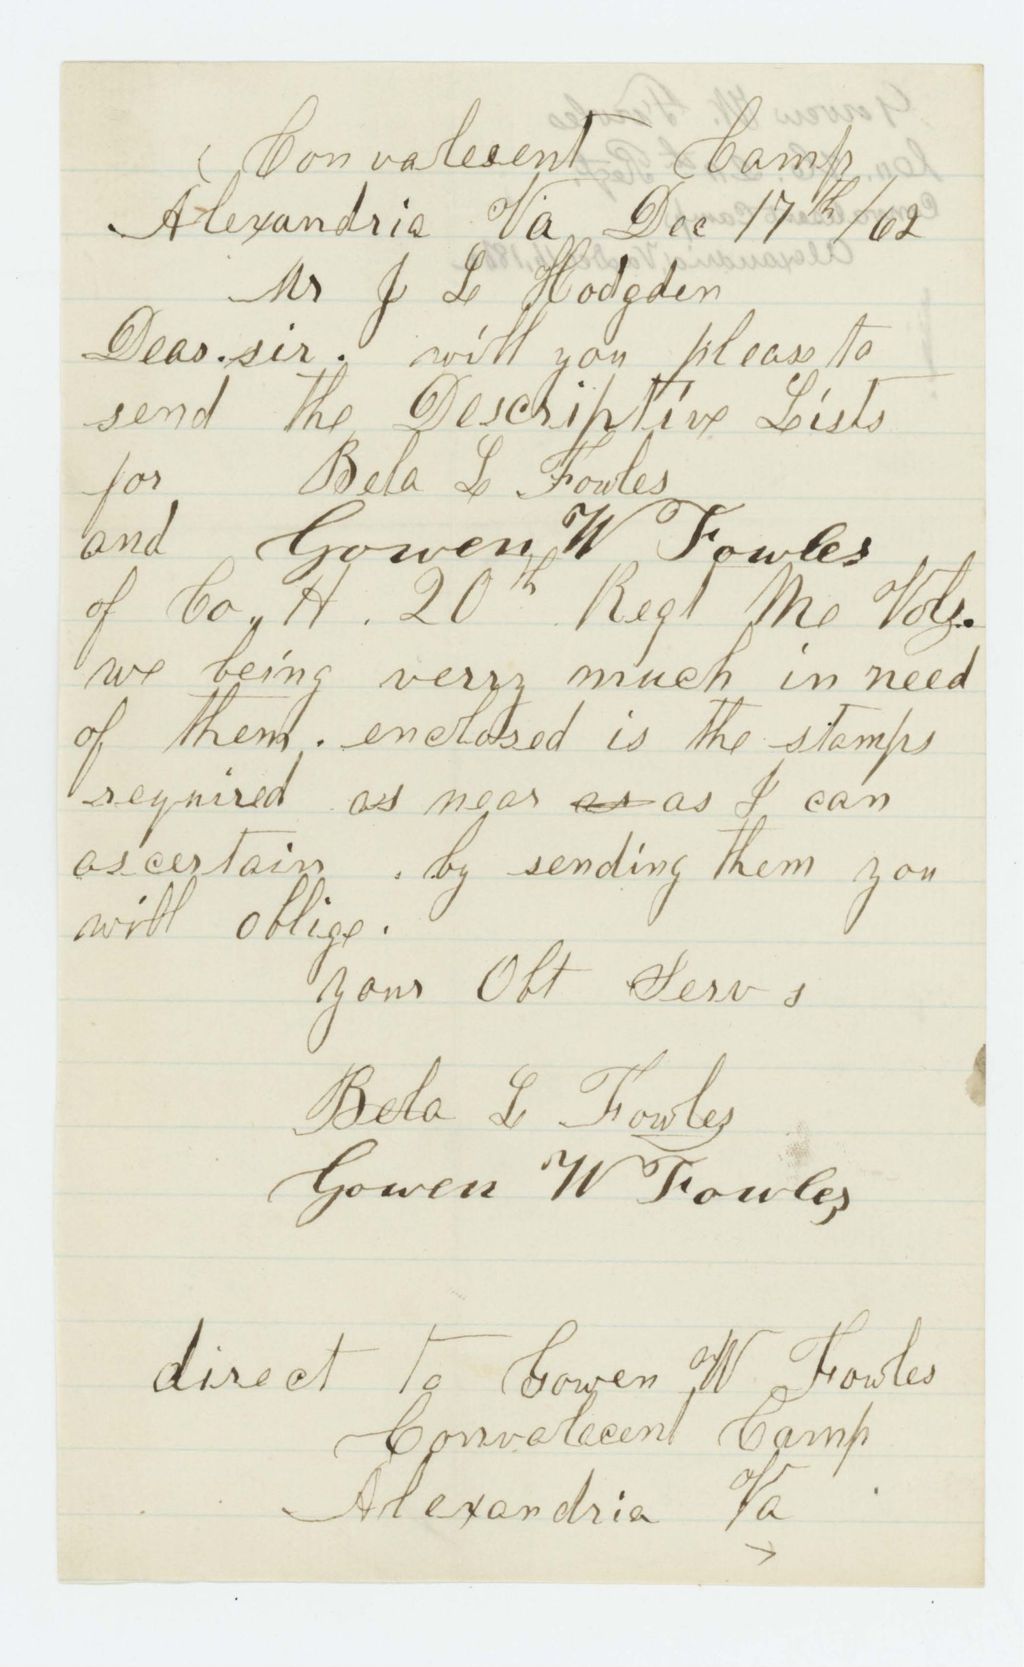 Convalecent Camp
Alexandria Va Dec 17th /62
Mr J L Hodgden
Dear. sir. will you please to
send the Descriptive Lists
for Bela L Fowles
and Gowen W Fowles
of Co. H. 20th Regt Me Vols.
we being verry much in need
of them. enclosed is the stamps
required as near as as I can
ascertain. by sending them you
will oblige.
your Obt Serv s
Bela L Fowles
Gowen W Fowles
direct to Gowen W Fowles
Convalecent Camp
Alexandria Va